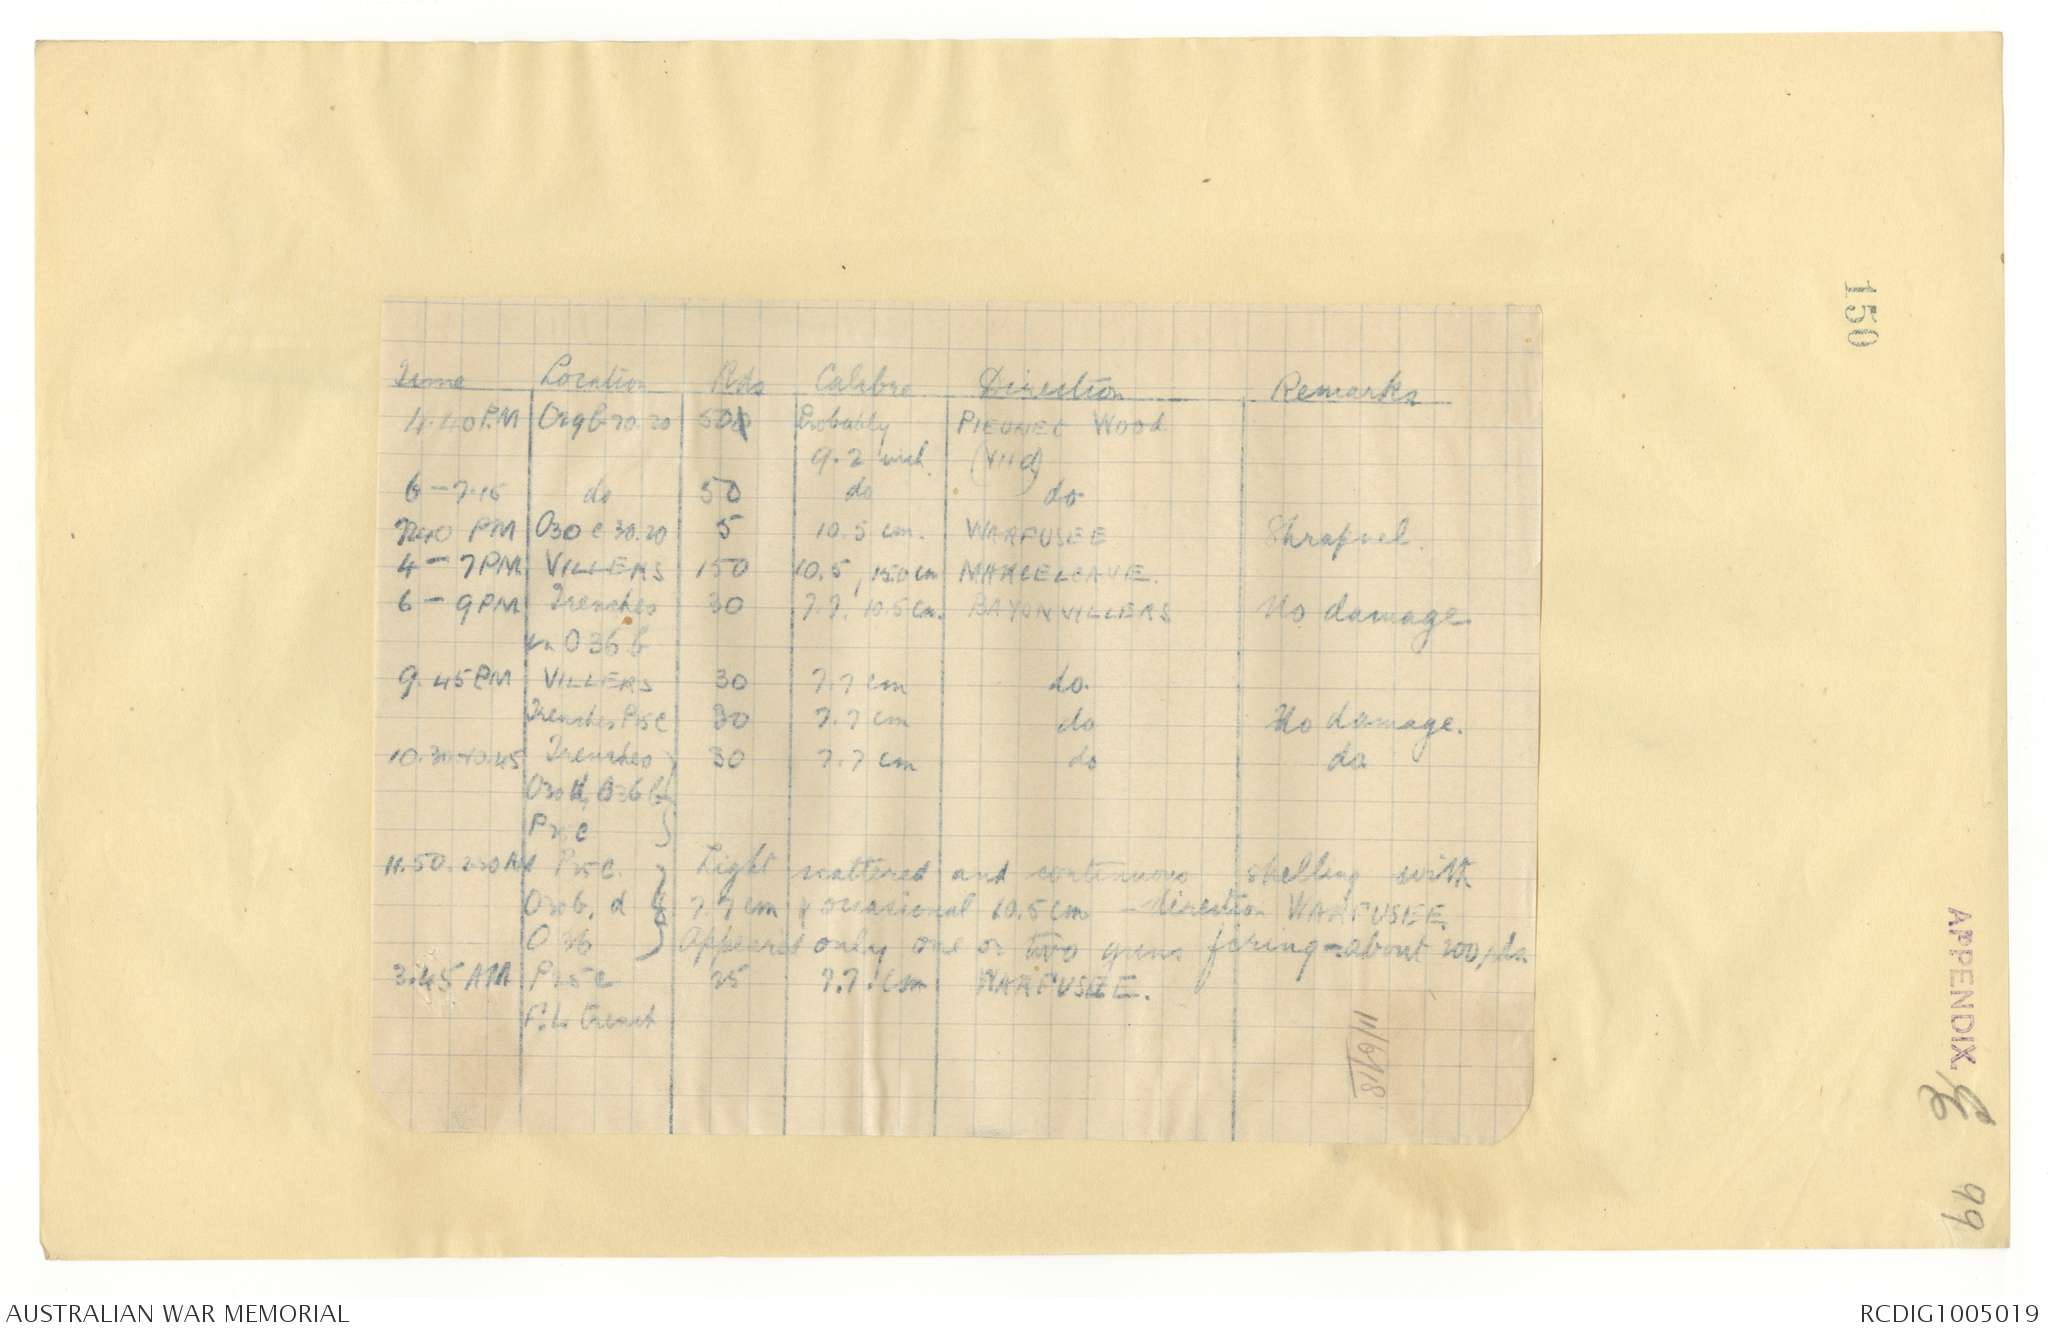 150
Time Location Rds Calibre Direction Remarks
4.40 PM O29b 70.20 50 Probably PIEUNEE Wood
9.2 inch (V11d)
6 - 7.15 do 50 do do
PM O30 c 30.20 5 10.5 cm. WARFUSEE Shrapnel.
4 - 7 PM VILLERS 150 10.5, 15.0 cm MARCELCAVE.
6 - 9 PM Trenches 30 7.7, 10.5 cm. BAYONVILLERS No damage.
in O 36 b
9.45 PM VILLERS 30 7.7 cm do.
Trenches P25c 30 7.7 cm do No damage.
10.30-10.45 Trenches 30 7.7 cm do do
O30 d, O36 b
P25c
11.50. 2.30 AM P25c. Light scattered and continuous shelling with
O30b, d & 7.7 cm & occasional 10.5 cm - direction WARFUSEE.
O 36 Appeared only one or two guns firing - about 200 rds.
3.45 AM P25c 25 7.7. cm WARFUSEE.
F.L. Trench
11/6/18
APPENDIX
99
AUSTRALIAN WAR MEMORIAL
RCDIG1005019